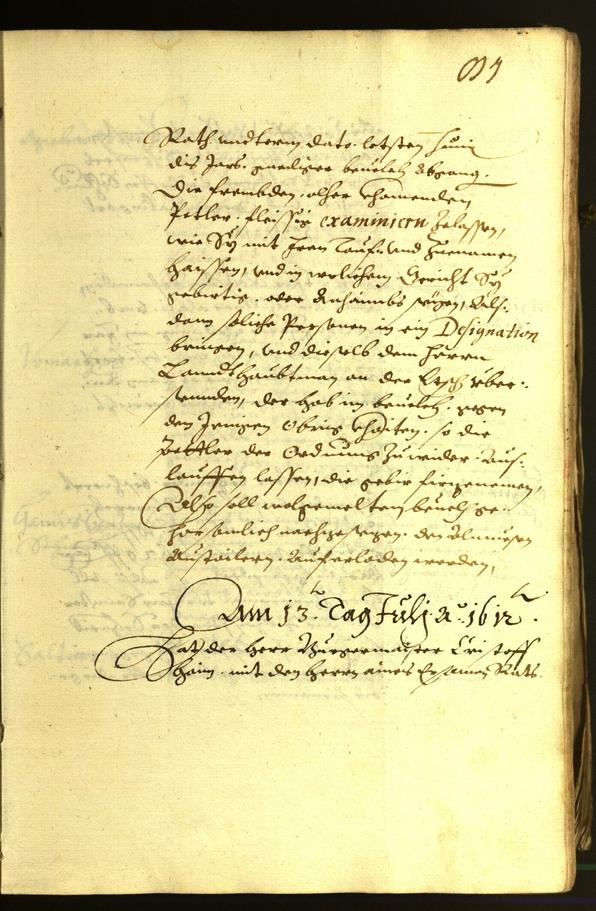 Rath undterm dato letsten Junij
dis Jars genediger bevelch abgang.
Die frembden alher khomenden
Petler fleissig examiniern zelassen,
wie Sy mit Iren Tauf: und Zuenamen
haissen, und in welichem Gericht Sy
gebirtig oder anhaimbs seyen, als:
dann soliche Personen in ein Designation
bringen, und dieselb dem herrn
Lanndtshaubtman an der Etsch über:
senndten, der hab im bevelch gegen
den Jenigen Obrigkhaiten so die
Pettler der Ordnung zuwider aus:
lauffen lassen, die gebir firzenemen,
Also soll wolgemelten bevelch ge:
horsamlich nachgesezen den Almuesen
Austailern Auferladen werden,
Am 13. Tag Julij A.º 1612.
Hat der herr Burgermaister Cristoff
haim mit den herrn aines Ersamen Rats